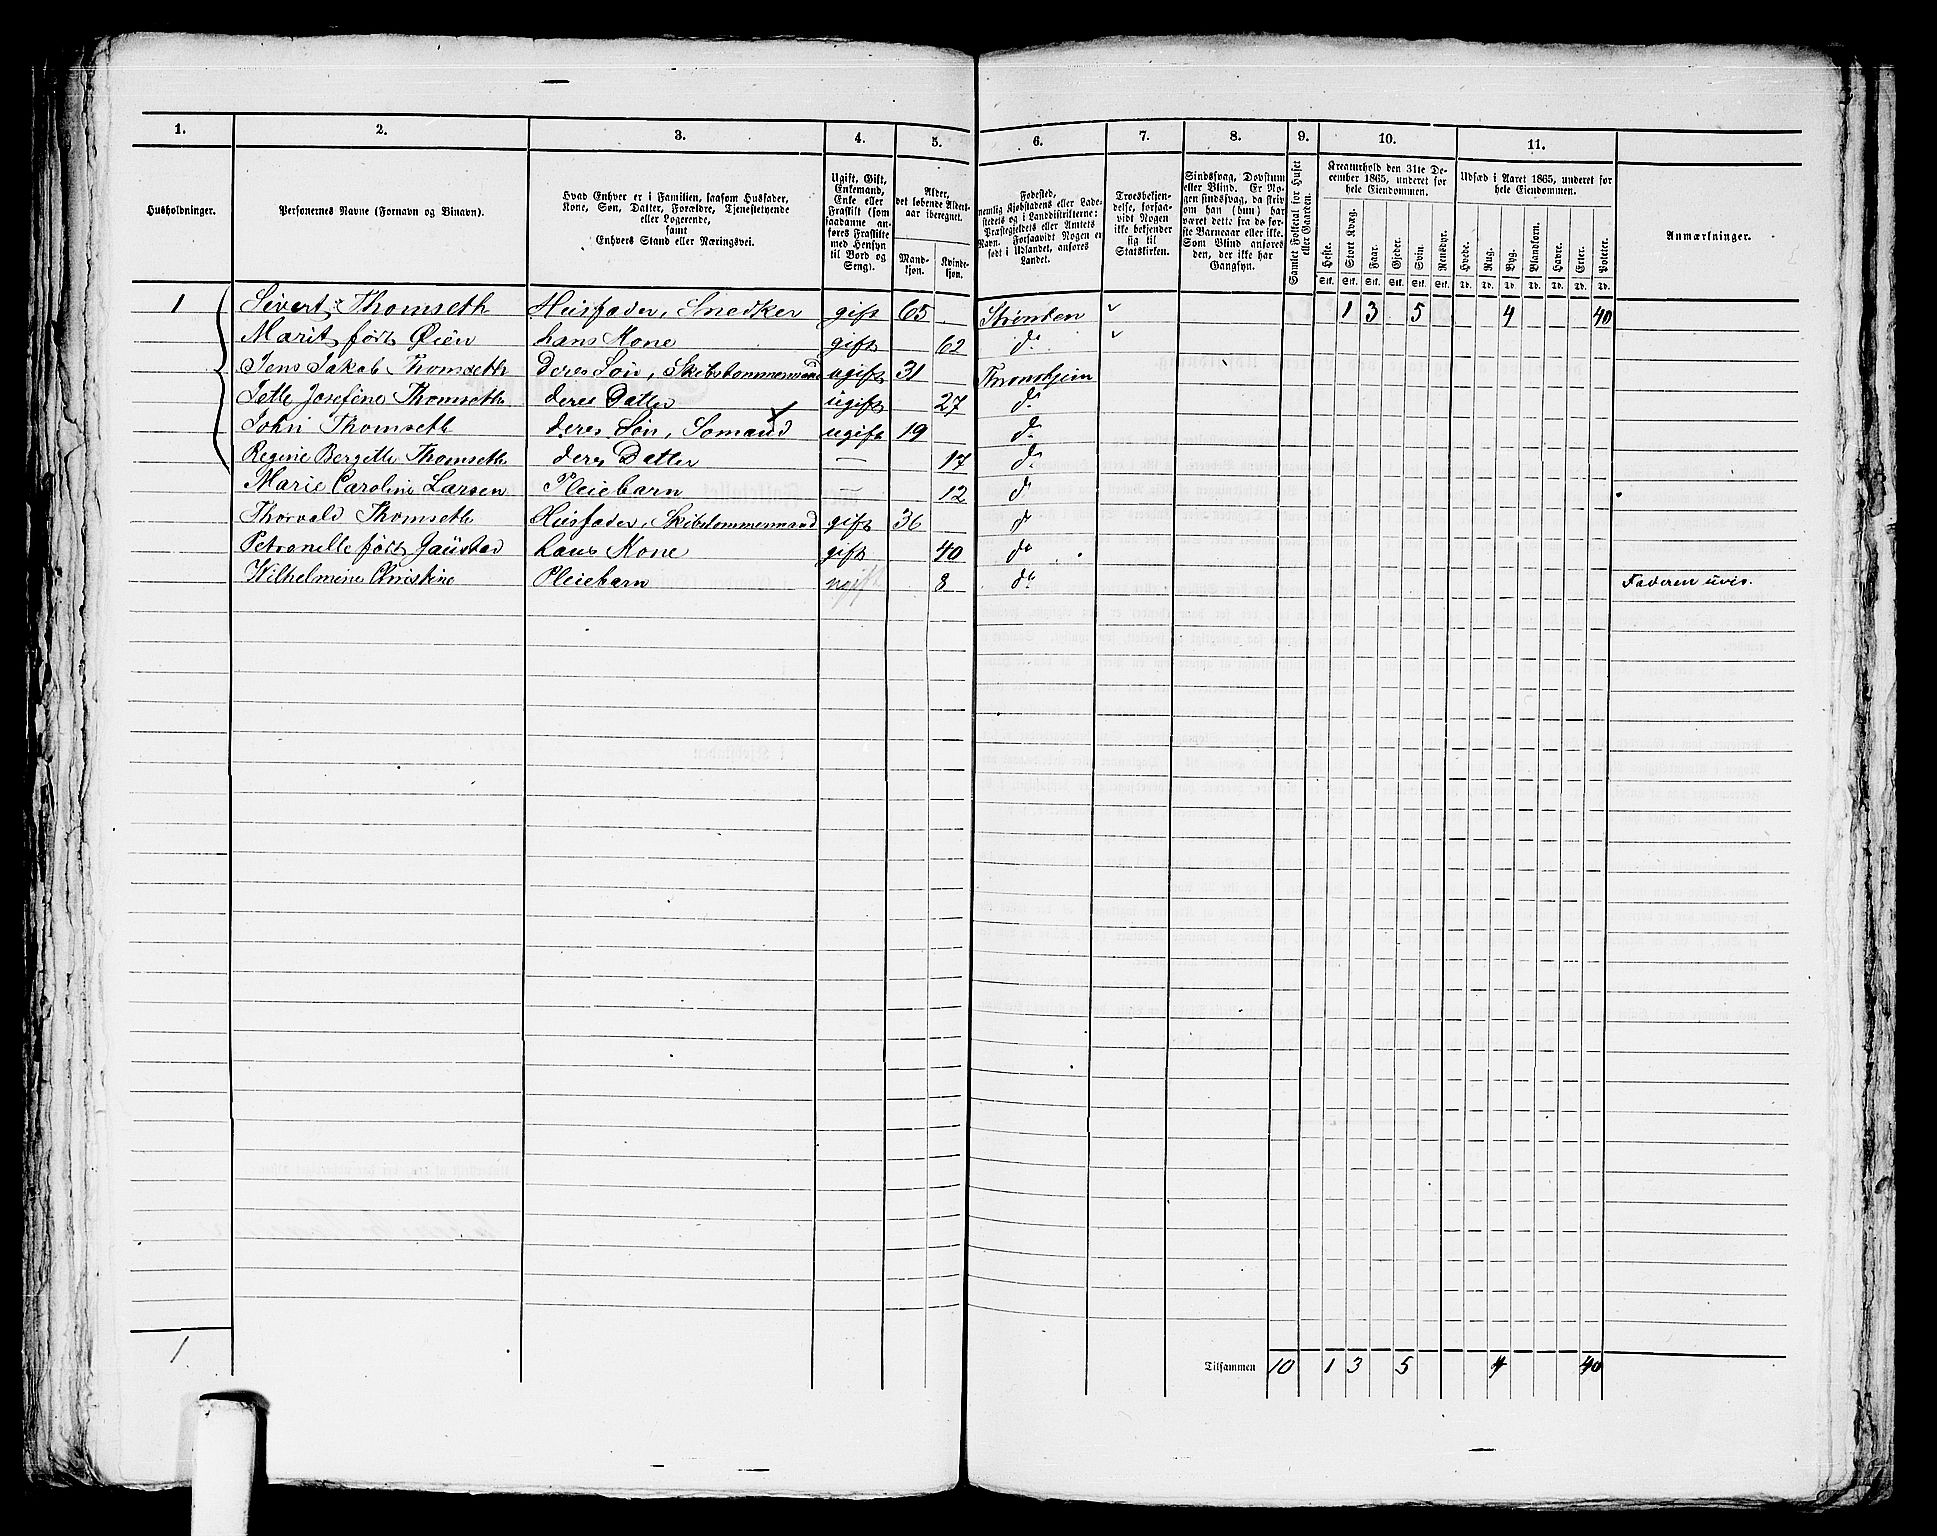 1. 2. 3. 4. 5. 6. 7. 8. 9. 10. 11.
Husholdninger.
Personernes Navne (Fornavn og Tilnavn).
Hvad Enhver er i Familien, saasom Husfader,
Kone, Søn, Datter, Forældre, Tjenestetyende
eller Logerende,
samt
Enhvers Stand eller Næringsvei.
Ugift, Gift,
Enkemand,
Enke eller
Fraskilt (som
saadanne an-
føres Fraskilte
med Hensyn
til Bord og
Seng).
Alder,
det løbende Alders-
aar iberegnet.
Mand-
kjøn.
Kvinde-
kjøn.
Fødested,
nemlig Kjøbstadens eller Lade-
stedets og i Landdistrikterne:
Præstegjeldets eller Amtets
Navn. Forsaavidt Nogen er
født i Udlandet, anføres
Landet.
Troesbekjen-
delse, forsaa-
vidt Nogen
ikke bekjender
sig til
Statskirken.
Sindssvag, Døvstum
eller Blind. Er No-
gen sindssvag, da skrives
om han (hun) har
været dette fra de før-
ste Barneaar eller ikke.
Som Blind anføres
den, der ikke har
Gangsyn.
Samlet Folketal for Huset
eller Gaarden.
Kreaturhold den 31te De-
cember 1865, underet for
hele Eiendommen.
Heste. Stort Kvæg. Faar. Gjeder. Svin. Rensdyr.
Stk. Stk. Stk. Stk. Stk. Stk.
Udsæd i Aaret 1865, underet for
hele Eiendommen.
Hvede. Rug. Byg. Blandkorn. Havre. Erter. Poteter.
Td. Td. Td. Td. Td. Td. Td.
Anmærkninger.
1 Sivert Thomseth Husfader, Snedker gift 65 Strinden 1 3 5 4 40
Marit født Øien hans Kone gift 62 do.
Jens Jakob Thomseth Deres Søn, Skibstømmermand ugift 31 Thronhjem
Jette Josefine Thomseth deres Datter ugift 27 do
John Thomseth deres Søn, Sømand ugift 19 do
Regine Bergitte Thomseth deres Datter — 17 do
Marie Caroline Larsen Pleiebarn — 12 do
Thorvald Thomseth Husfader, Skibstømmermand gift 36 do
Petronelle født Gaustad hans Kone gift 40 do
Wilhelmine Christine Pleiebarn ugift 8 do Faderen uvis.
1. Tilsammen 10 1 3 5 4 40